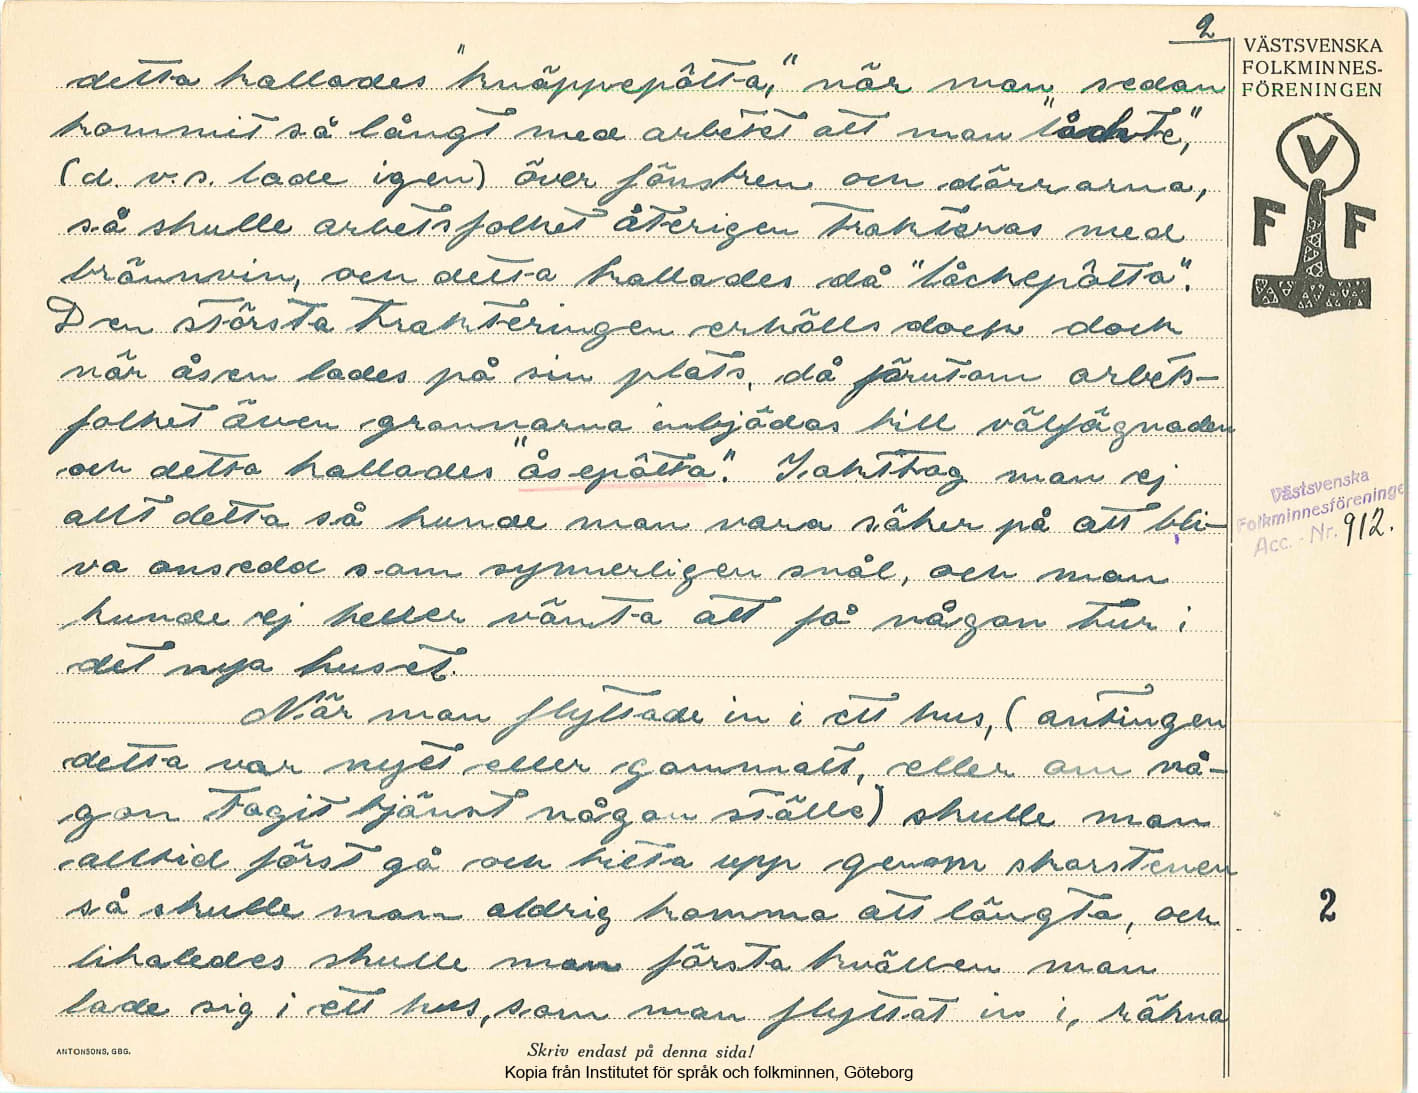 2
VÄSTSVENSKA
FOLKMINNES-
FÖRENINGEN
V
F F
detta kallades "knäppepôtta," när man sedan
kommit så långt med arbetet att man "låckte,"
(d. v. s. lade igen) över fönstren och dörrarna,
så skulle arbetsfolket återigen trakteras med
brännvin, och detta kallades då "låckepôtta".
Den största trakteringen erhölls dock dock
när åsen lades på sin plats, då förutom arbets-
folket även grannarna inbjödos till välfägnaden
och detta kallades "åsepôtta". Iakttog man ej
allt detta så kunde man vara säker på att bli-
va ansedd som synnerligen snål, och man
kunde ej heller vänta att få någon tur i
det nya huset.
När man flyttade in i ett hus, (antingen
detta var nytt eller gammalt, eller om nå-
gon tagit tjänst någon ställe) skulle man
alltid först gå och titta upp genom skorstenen
så skulle man aldrig komma att längta, och
likaledes skulle man första kvällen man
lade sig i ett hus, som man flyttat in i, räkna
Västsvenska
Folkminnesföreninge
Acc. - Nr. 912.
2
ANTONSONS, GBG.
Skriv endast på denna sida!
Kopia från Institutet för språk och folkminnen, Göteborg